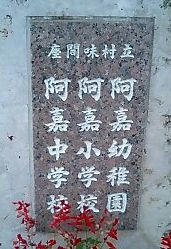 座間味村立
阿嘉幼稚園
阿嘉小学校
阿嘉中学校